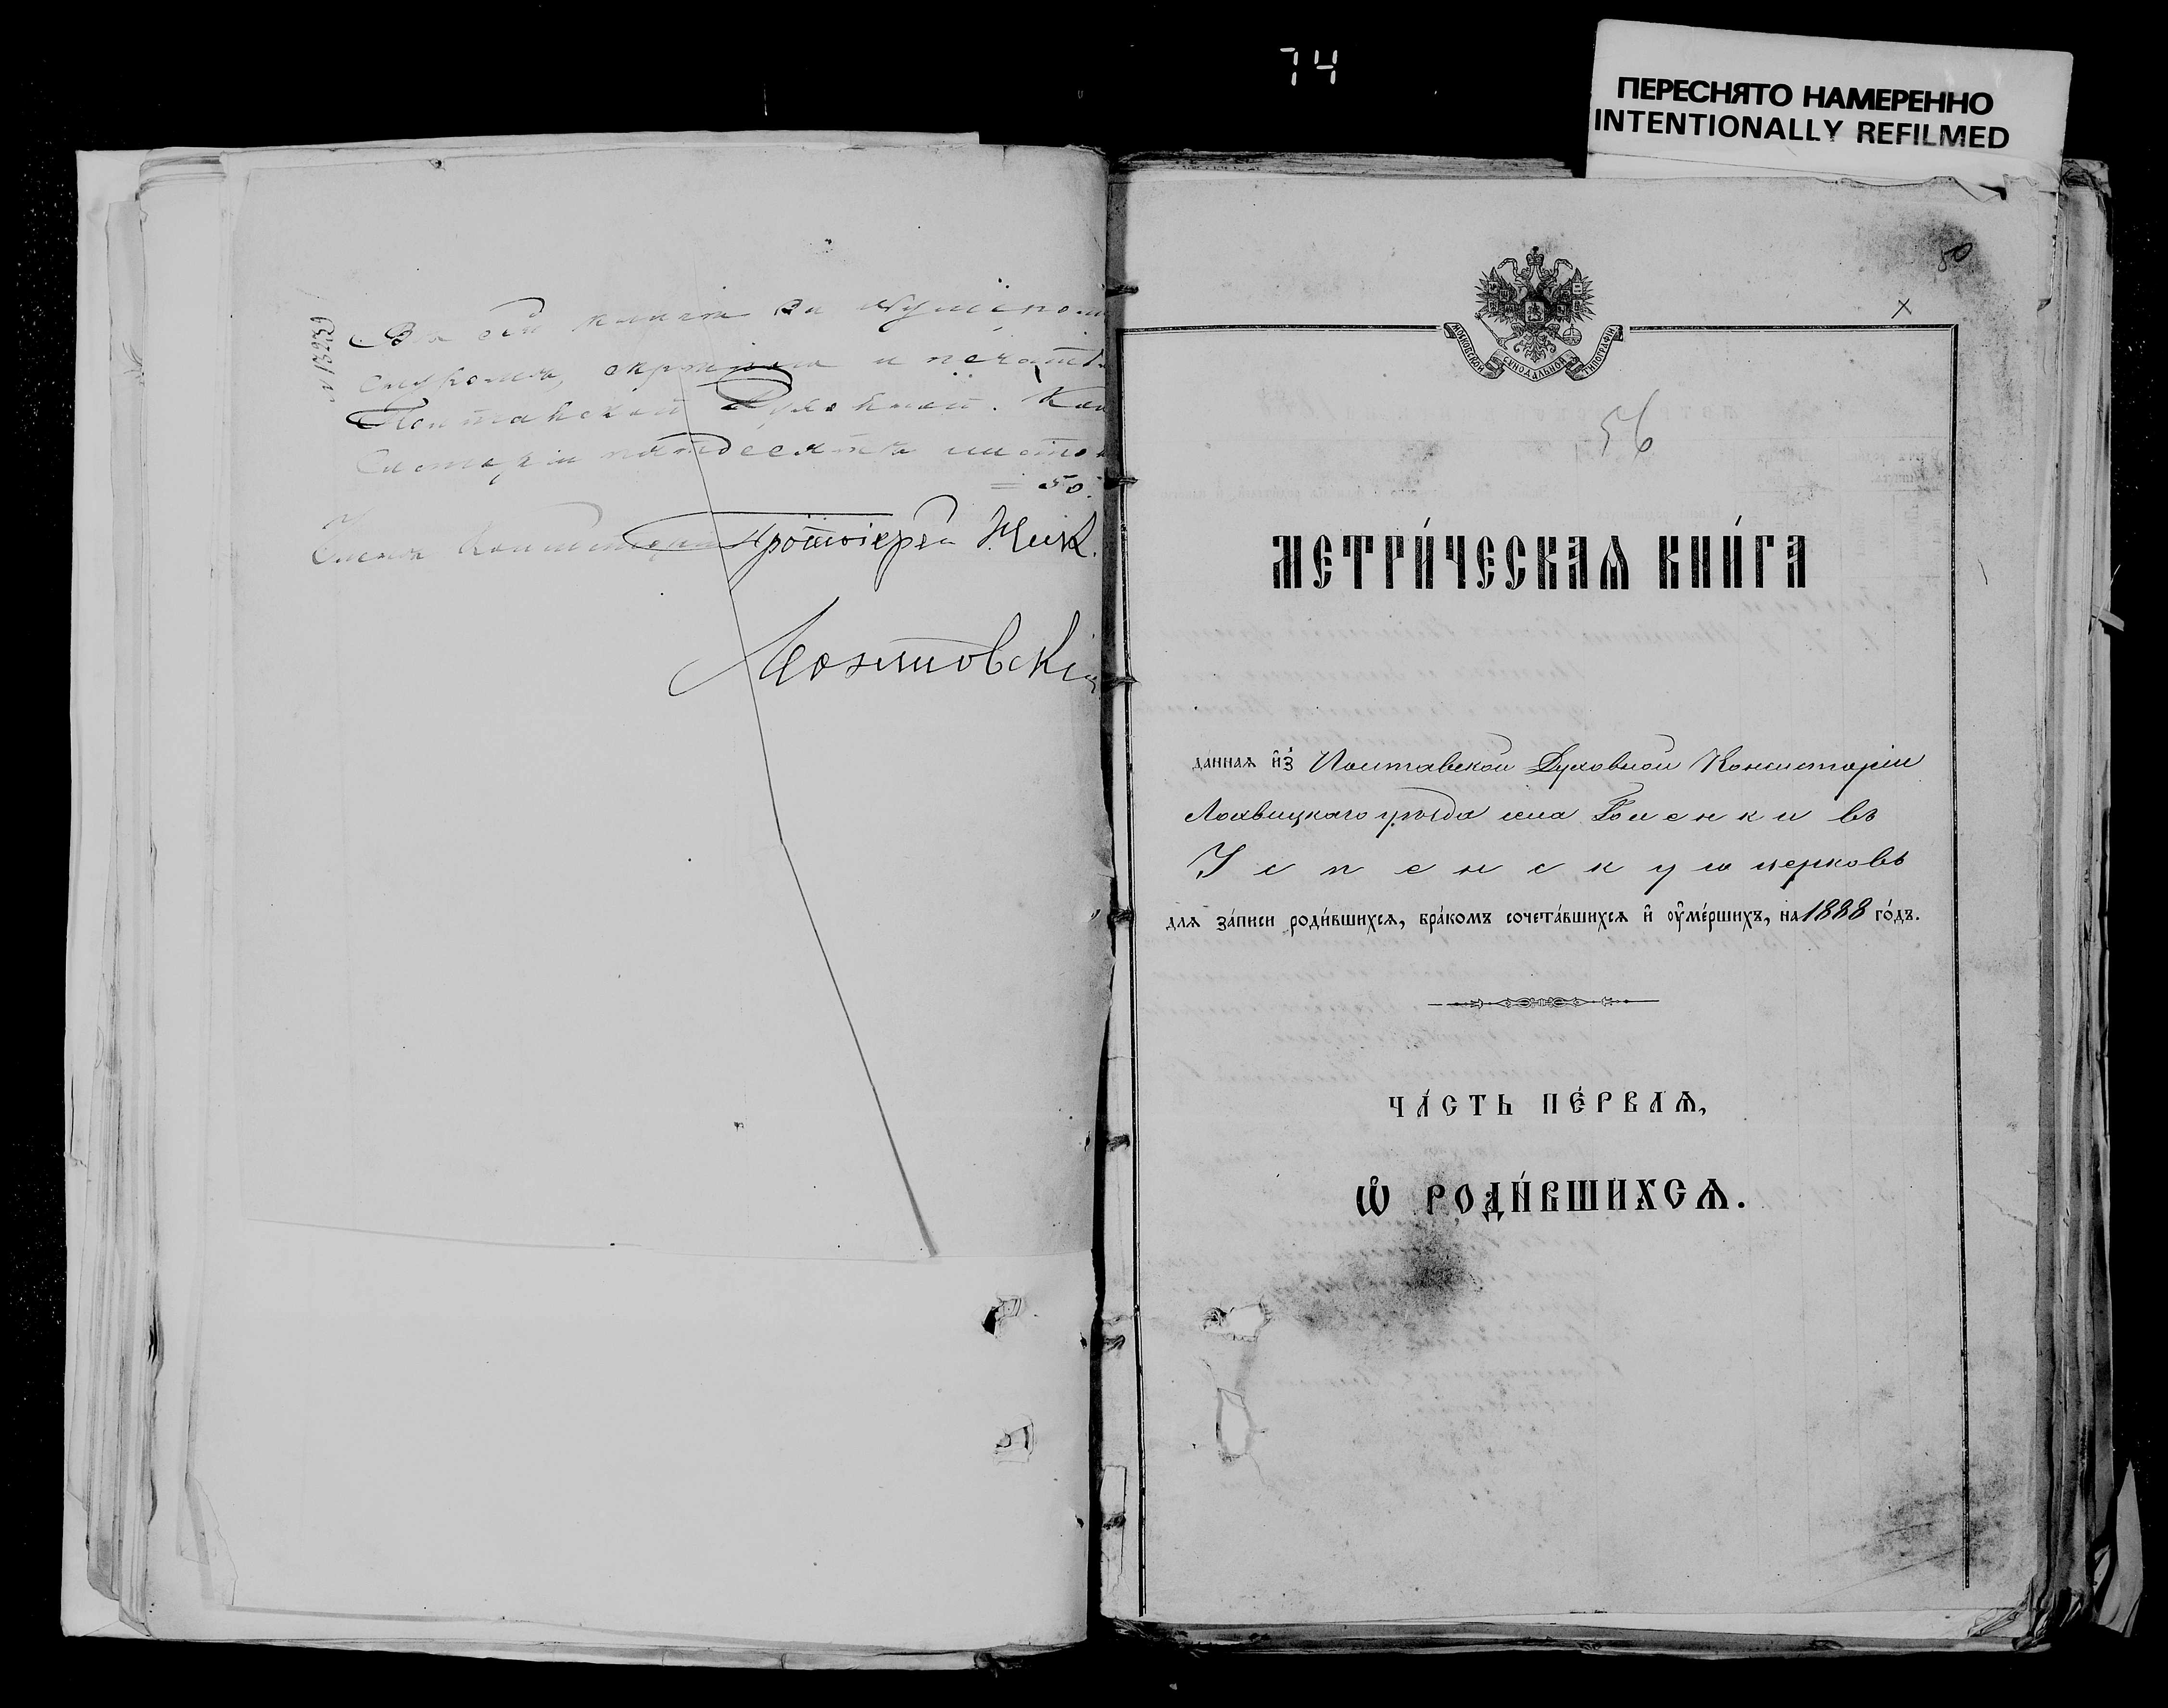 74
ПЕРЕСНЯТО НАМЕРЕННО
INTENTIONALLY REFILMED
Въ сей книгѣ за
и печатью
Полтавской Духовной Кон
систоріи пятдесятъ листо
= 50.
Членъ Консисторіи Протоіерей Ник.
50
х
МОСКОВСКОЙ СѴНОДАЛЬНОЙ ТИПОГРАФІИ
56
МЕТРИ́ЧЕСКАѦ КНИ́ГА
да́ннаѧ и҆з̾ Полтавской Духовной Консисторіи
Лохвицкаго уѣзда села въ
Успенскую церковь
для за́писи роди́вшихсѧ, бра́комъ сочета́вшихсѧ и҆ ѹ҆ме́ршихъ, на 1888 го́дъ.
ЧА́СТЬ ПЕ́РВАѦ,
Ѡ҆ РОДИ́ВШИХСѦ.